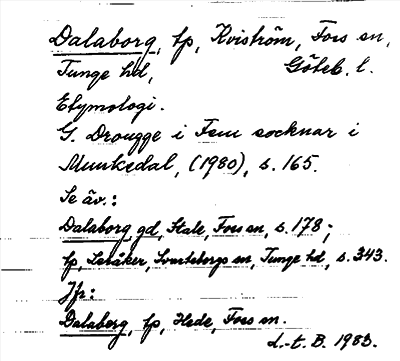 Dalaborg, tp, Kviström, Foss sn,
Tunge hd, Göteb. l.
Etymologi.
G. Drougge i Fem socknar i
Munkedal, (1980), s. 165.
Se äv.:
Dalaborg gd, Stale, Foss sn, s. 178;
tp, Leråker, Svarteborgs sn, Tunge hd, s. 343.
Jfr:
Dalaberg, tp, Hede, Foss sn.
L.-t. B. 1983.